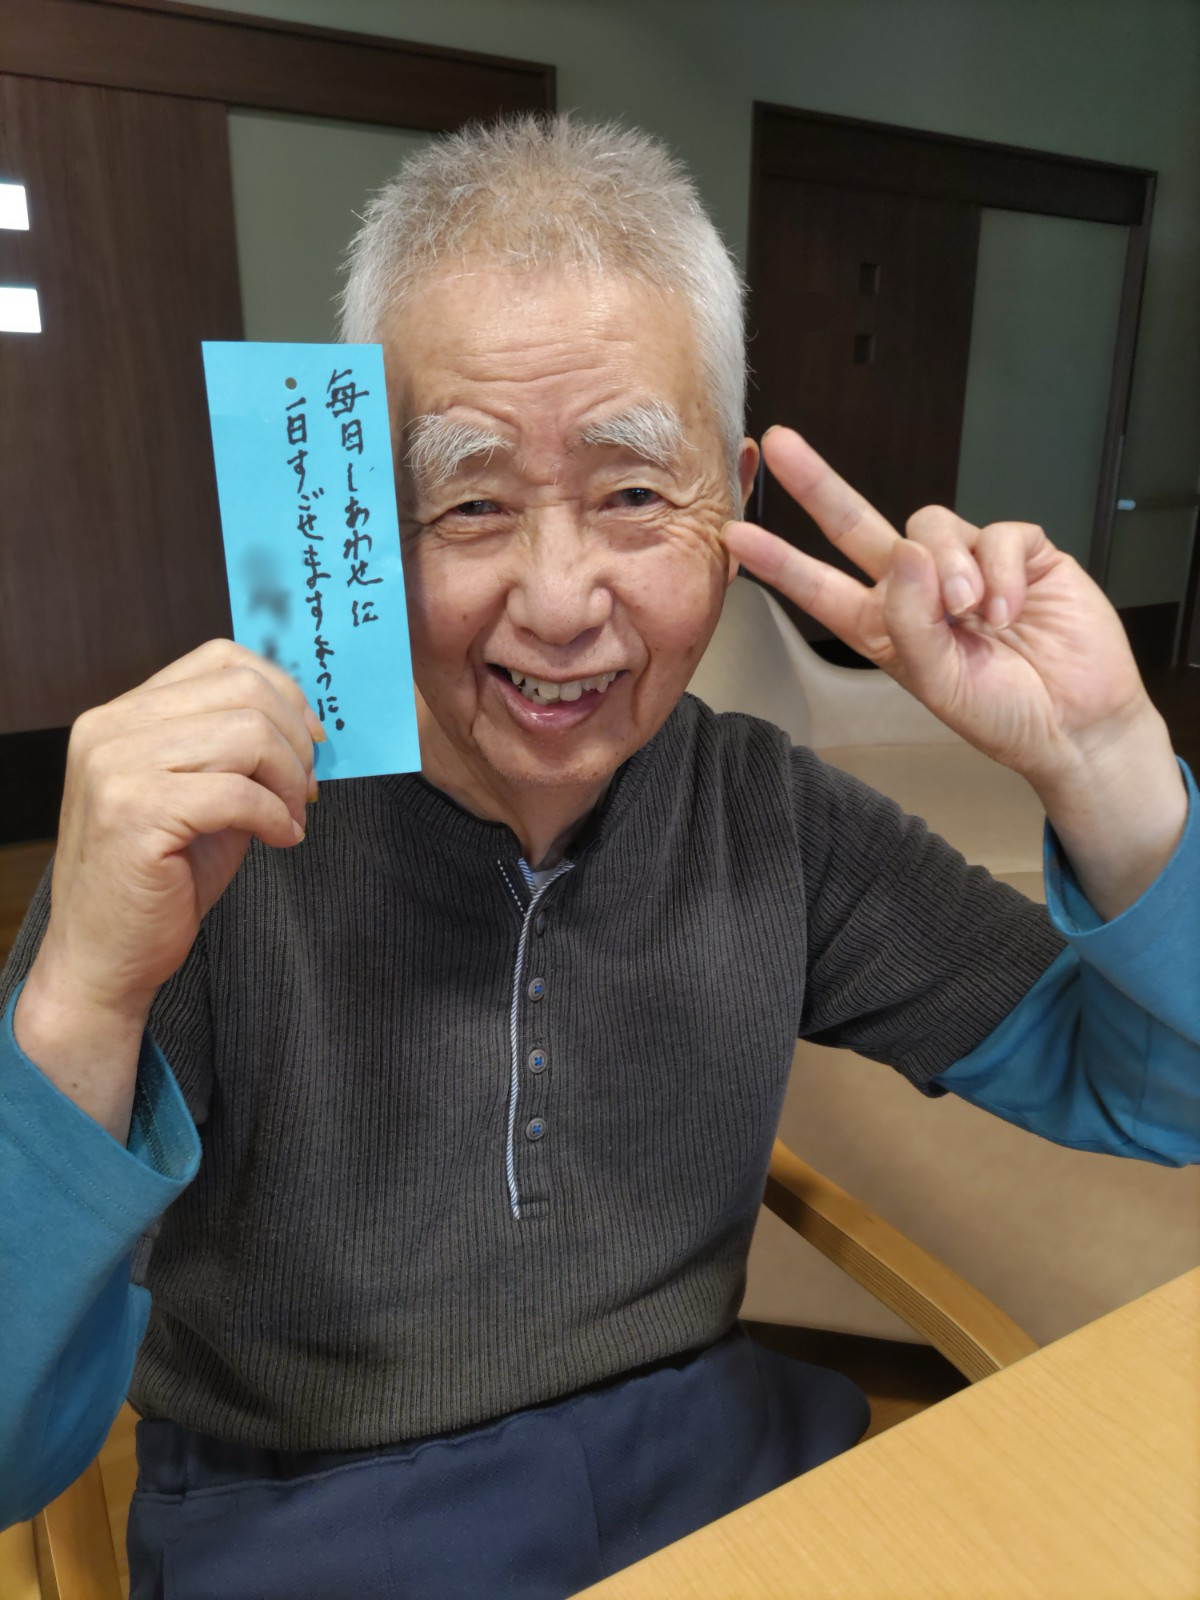 毎日しあわせに
・一日すごせますように。